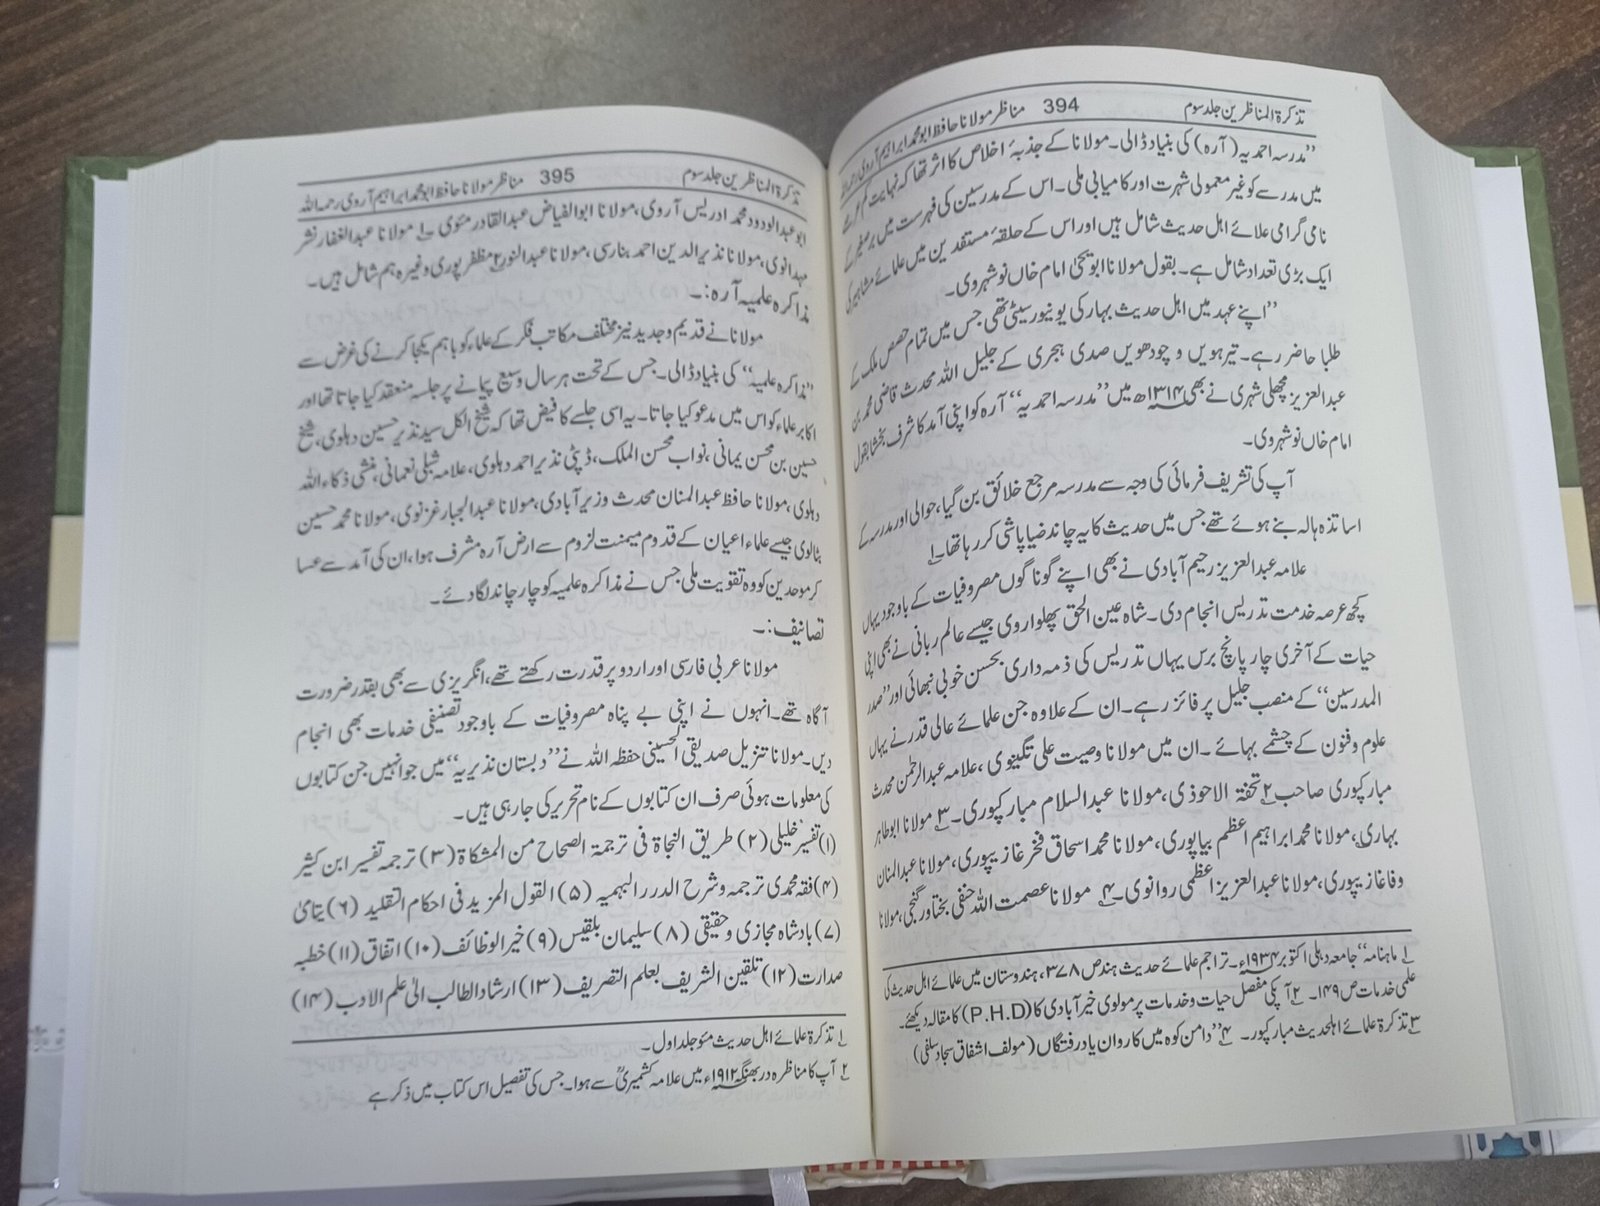 تذکرۃ المناظرین جلد سوم 394 مناظر مولانا حافظ ابو محمد ابراہیم آروی
”مدرسہ احمدیہ (آرہ) کی بنیاد ڈالی۔ مولانا کے جذبۂ اخلاص کا اثر تھا کہ نہایت کم
میں مدرسے کو غیر معمولی شہرت اور کامیابی ملی۔ اس کے مدرسین کی فہرست میں برصغیر کے
نامی گرامی علمائے اہل حدیث شامل ہیں اور اس کے حلقۂ مستفدین میں علمائے مشاہیر کی
ایک بڑی تعداد شامل ہے۔ بقول مولانا ابو یحییٰ امام خاں نوشہروی۔
”اپنے عہد میں اہل حدیث بہار کی یونیورسیٹی تھی جس میں تمام حصص ملک کے
طلبا حاضر رہے۔ تیرہویں و چودھویں صدی ہجری کے جلیل اللہ محدث قاضی محمد بن
عبدالعزیز مچھلی شہری نے بھی ۱۳۱۴ھ میں ”مدرسہ احمدیہ“ آرہ کو اپنی آمد کا شرف بخشا بقول
امام خاں نوشہروی۔
آپ کی تشریف فرمائی کی وجہ سے مدرسہ مرجع خلائق بن گیا، حوالی اور مدرسہ کے
اساتذہ ہالہ بنے ہوئے تھے جس میں حدیث کا یہ چاند ضیا پاشی کر رہا تھا۔ ۱
علامہ عبدالعزیز رحیم آبادی نے بھی اپنے گوناگوں مصروفیات کے باوجود یہاں
کچھ عرصہ خدمت تدریس انجام دی۔ شاہ عین الحق پھلواروی جیسے عالم ربانی نے بھی اپنی
حیات کے آخری چار پانچ برس یہاں تدریس کی ذمہ داری بحسن خوبی نبھائی اور ”صدر
المدرسین“ کے منصب جلیل پر فائز رہے۔ ان کے علاوہ جن علمائے عالی قدر نے یہاں
علوم و فنون کے چشمے بہائے۔ ان میں مولانا وصیت علی تگینوی، علامہ عبدالرحمٰن محدث
مبارکپوری صاحب ۲ تحفۃ الاحوذی، مولانا عبدالسلام مبارکپوری۔ ۳ مولانا ابو طاہر
بہاری، مولانا محمد ابراہیم اعظم بیاپوری، مولانا محمد اسحاق فخر غازیپوری، مولانا عبدالمنان
وفا غازیپوری، مولانا عبدالعزیز اعظمی روانوی۔ ۴ مولانا عصمت اللہ حنفی بختاور گنجی، مولانا
۱ ماہنامہ ”جامعہ دہلی اکتوبر ۱۹۳۴ء۔ تراجم علمائے حدیث ہند ص ۳۷۸، ہندوستان میں علمائے اہل حدیث کی
علمی خدمات ص ۱۴۹۔ ۲ آپ کی مفصل حیات و خدمات پر مولوی خیرآبادی کا (P.H.D) کا مقالہ دیکھئے۔
۳ تذکرۃ علمائے اہلحدیث مبارکپور۔ ۴ ”دامن کوہ میں کاروان یا درفتگاں (مولف اشفاق سجاد سلفی)
تذکرۃ المناظرین جلد سوم 395 مناظر مولانا حافظ ابو محمد ابراہیم آروی رحمہ اللہ
ابو عبدالودود محمد ادریس آروی، مولانا ابوالفیاض عبدالقادر مئوی۔ ۱ مولانا عبدالغفار نشر
مہدانوی، مولانا نذیر الدین احمد بنارسی، مولانا عبدالنور ۲ مظفر پوری وغیرہ ہم شامل ہیں۔
مذاکرہ علمیہ آرہ:۔
مولانا نے قدیم و جدید نیز مختلف مکاتب فکر کے علماء کو باہم یکجا کرنے کی غرض سے
”مذاکرہ علمیہ“ کی بنیاد ڈالی۔ جس کے تحت ہر سال وسیع پیمانے پر جلسہ منعقد کیا جاتا تھا اور
اکابر علماء کو اس میں مدعو کیا جاتا۔ یہ اسی جلسے کا فیض تھا کہ شیخ الکل سید نذیر حسین دہلوی، شیخ
حسین بن محسن یمانی، نواب محسن الملک، ڈپٹی نذیر احمد دہلوی، علامہ شبلی نعمانی، منشی ذکاء اللہ
دہلوی، مولانا حافظ عبدالمنان محدث وزیر آبادی، مولانا عبدالجبار غزنوی، مولانا محمد حسین
بٹالوی جیسے علماء اعیان کے قدوم میمنت لزوم سے ارض آرہ مشرف ہوا، ان کی آمد سے عسا
کر موحدین کو وہ تقویت ملی جس نے مذاکرہ علمیہ کو چار چاند لگا دئے۔
تصانیف:۔
مولانا عربی فارسی اور اردو پر قدرت رکھتے تھے، انگریزی سے بھی بقدر ضرورت
آگاہ تھے۔ انہوں نے اپنی بے پناہ مصروفیات کے باوجود تصنیفی خدمات بھی انجام
دیں۔ مولانا تنزیل صدیقی الحسینی حفظہ اللہ نے ”دبستان نذیریہ“ میں جو انہیں جن کتابوں
کی معلومات ہوئی صرف ان کتابوں کے نام تحریر کی جا رہی ہیں۔
(۱) تفسیر خلیلی (۲) طریق النجاۃ فی ترجمۃ الصحاح من المشکاۃ (۳) ترجمہ تفسیر ابن کثیر
(۴) فقہ محمدی ترجمہ و شرح الدرر البہمیہ (۵) القول المزید فی احکام التقلید (۶) یتامیٰ
(۷) بادشاہ مجازی و حقیقی (۸) سلیمان بلقیس (۹) خیر الوظائف (۱۰) اتفاق (۱۱) خطبہ
صدارت (۱۲) تلقین الشریف بعلم التصریف (۱۳) ارشاد الطالب الیٰ علم الادب (۱۴)
۱ تذکرۃ علمائے اہل حدیث مئو جلد اول۔
۲ آپ کا مناظرہ دربھنگہ ۱۹۱۲ء میں علامہ کشمیریؒ سے ہوا۔ جس کی تفصیل اس کتاب میں ذکر ہے